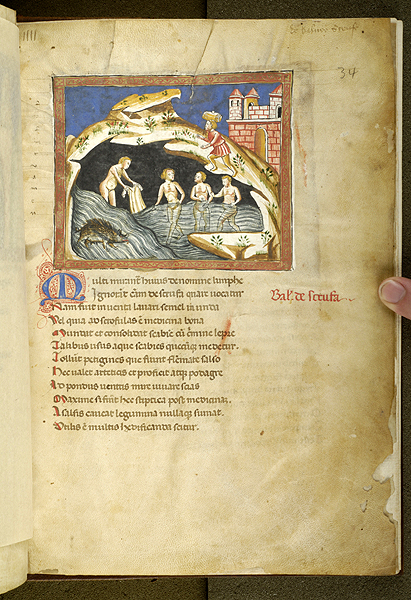 34
Bal' de scrofa
Multi mirant' huius de nomine limphe
Ignorāt cām de scrofa quare uocatur
Nam sunt inuenti lauari semel in unda
Vel quia ad scrofulas ē medicina bona
Mundat et consolidat scabiē cū cmine lepre
Talibus usus aque scabies quecūq; medetur.
Tollit petigines que fiunt flēmate salso
Hec ualet arteticis et proficit atq; podagre
Ad pondus uentris mire iuuare scias
Maxime si fiunt hec stiptica post medicinaʒ.
A salsis caueat legumina nullaq; sumat.
Vtilis ē multis hedificanda scitur.